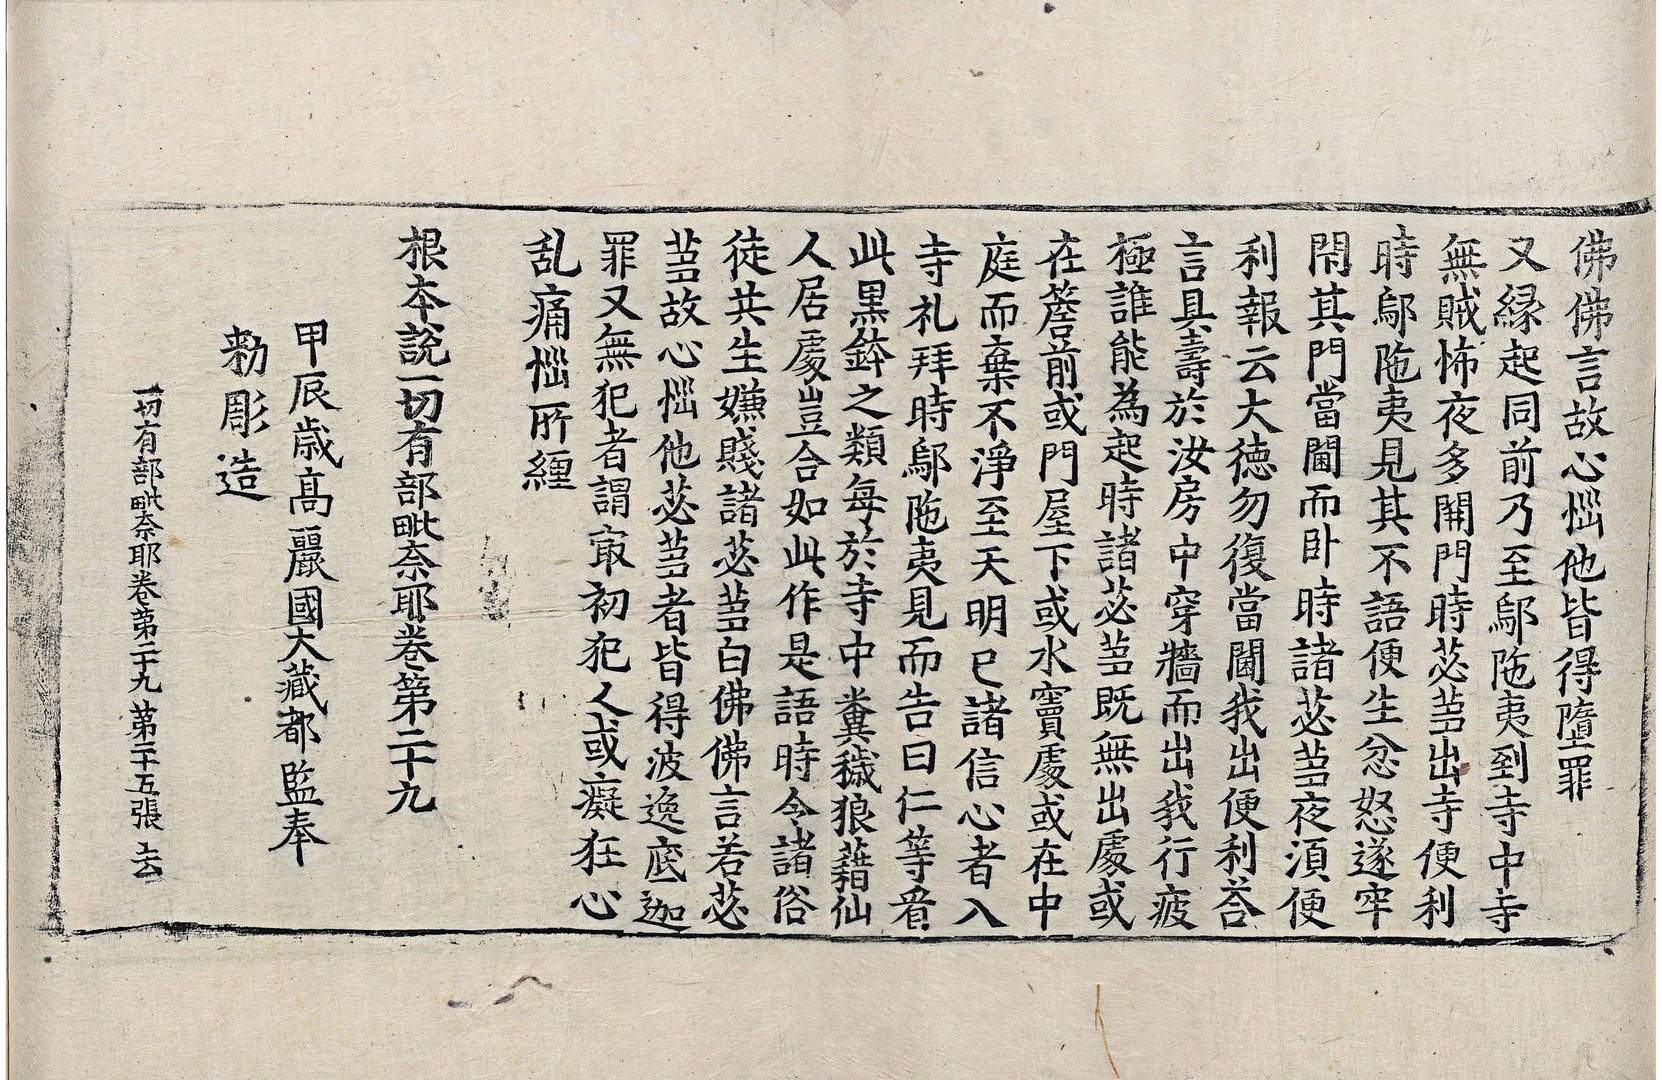 佛佛言故心惱他皆得墮罪
又緣起同前乃至鄔陁夷到寺中寺
無賊怖夜多開門時苾芻出寺便利
時鄔陁夷見其不語便生忿怒遂牢
閇其門當闑而卧時諸苾芻夜湏便
利報云大德勿復當闑我出便利荅
言具壽於汝房中穿牆而出我行疲
極誰能為起時諸苾芻既無出處或
在簷前或門屋下或水竇處或在中
庭而棄不淨至天明已諸信心者入
寺礼拜時鄔陁夷見而告曰仁等看
此黑鉢之類每於寺中糞穢狼藉仙
人居處豈合如此作是語時令諸俗
徒共生嫌賤諸苾芻白佛佛言若苾
芻故心惱他苾芻者皆得波逸底迦
罪又無犯者謂㝡初犯人或癡狂心
乱痛惱所纏
根本說一切有部毗奈耶卷第二十九
甲辰歲高麗國大藏都監奉
勑彫造
一切有部毗奈耶卷第二十九 第二十五張 去